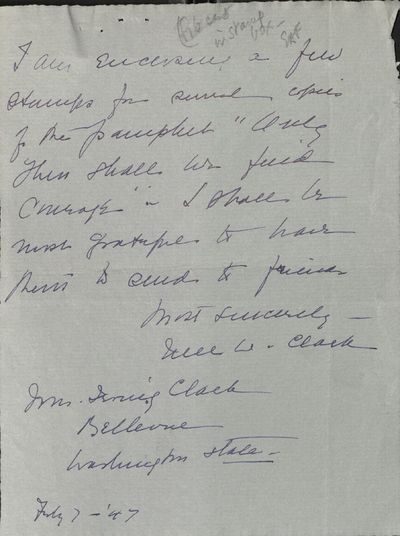 in stamp
box -
I am enclosing a few
stamps for several copies
of the pamphlet "Only
Then Shall We Find
Courage" - I shall be
most grateful to have
them to send to friends
Most sincerely -
W. Clark
Mrs. Irving Clark
Bellevue
Washington State -
July 7 - '47